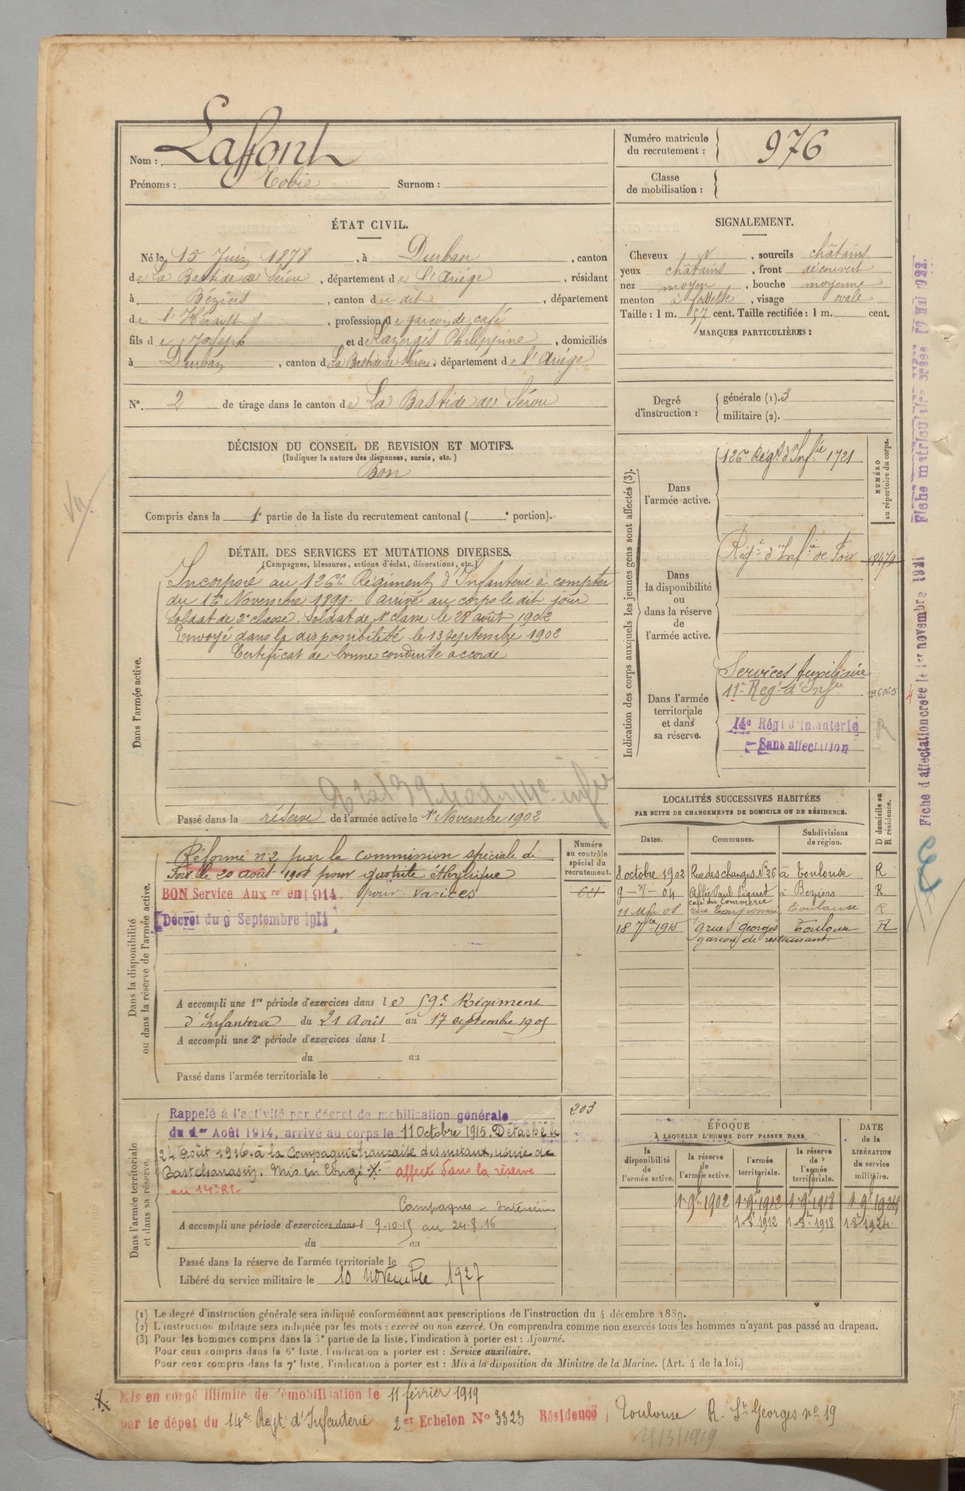 Nom : Laffont
Prénoms : Tobie Surnom :
Numéro matricule du recrutement : 976
Classe de mobilisation :
ÉTAT CIVIL.
Né le 15 Juin 1878, à Durban, canton
de La Bastide de Sérou, département de l'Ariége, résidant
à Béziers, canton du dit, département
de l'Hérault, profession de garçon de café
fils de Joseph et de Philippine, domiciliés
à Durban, canton de La Bastide de Sérou, département de l'Ariége
N° 2 de tirage dans le canton de La Bastide de Sérou
SIGNALEMENT.
Cheveux , sourcils châtains
yeux châtains, front découvert
nez moyen, bouche moyenne
menton à fossette, visage ovale
Taille : 1 m. 57 cent. Taille rectifiée : 1 m. cent.
MARQUES PARTICULIÈRES :
Degré d'instruction : générale (1). 3
militaire (2).
DÉCISION DU CONSEIL DE REVISION ET MOTIFS.
(Indiquer la nature des dispenses, sursis, etc.)
Bon
Compris dans la 1e partie de la liste du recrutement cantonal ( e portion).
DÉTAIL DES SERVICES ET MUTATIONS DIVERSES.
(Campagnes, blessures, actions d'éclat, décorations, etc.)
Dans l'armée active.
Incorporé au 126e Régiment d'Infanterie à compter
du 1er Novembre 1899. arrivé au corps le dit jour
Soldat de 2e classe. Soldat de 1e classe le 28 août 1902
Envoyé dans la disponibilité le 13 septembre 1902
Certificat de bonne conduite accordé
Passé dans la réserve de l'armée active le 1er Novembre 1902
Indication des corps auxquels les jeunes gens sont affectés (3).
NUMÉRO au répertoire du corps.
Dans l'armée active.
126e Régt d'Infrie 1721
Dans la disponibilité ou dans la réserve de l'armée active.
Régt d'Infie de Foix
Dans l'armée territoriale et dans sa réserve.
Services Auxiliaire
11e Régt d'Infie
14e Régt d'Infanterie
Sans affectation
Fiche d'affectation créée le 1er novembre 1921
Fiche matriculaire créée
Dans la disponibilité ou dans la réserve de l'armée active.
Réformé n° 2 par la commission spéciale de
Foix le 20 août 1908 pour
BON Service Auxre en 1914 pour varices
Décret du 9 Septembre 1914
A accompli une 1re période d'exercices dans le 59e Régiment
d'Infanterie du 21 Août au 17 septembre 1905
A accompli une 2e période d'exercices dans l
du au
Passé dans l'armée territoriale le
Numéro au contrôle spécial du recrutement.
303
LOCALITÉS SUCCESSIVES HABITÉES
PAR SUITE DE CHANGEMENTS DE DOMICILE OU DE RÉSIDENCE.
Dates. Communes. Subdivisions de région. D domicile ou R résidence.
8 octobre 1902 Rue des changes N° 26 à Toulouse R
9-3-04 Allée Paul Riquet à Béziers R
café du Commerce
08 Toulouse R
18 7bre 1915 9 rue Georges Toulouse R
garçon de restaurant
Dans l'armée territoriale et dans sa réserve.
Rappelé à l'activité par décret de mobilisation générale
du 1er Août 1914, arrivé au corps le 11 Octobre 1915. Détaché le
24 Août 1916 à la Compagnie française des métaux, usine de
Castelsarrasin. Mis en congé ⁎ affecté dans la réserve
au 14e RI.
Campagnes - Intérieur
A accompli une période d'exercices dans l 9-10-15 au 24-8-16
du au
Passé dans la réserve de l'armée territoriale le
Libéré du service militaire le 10 novembre 1927
ÉPOQUE
À LAQUELLE L'HOMME DOIT PASSER DANS
la disponibilité de l'armée active. la réserve de l'armée active. l'armée territoriale. la réserve de l'armée territoriale. DATE de la LIBÉRATION du service militaire.
1er 9bre 1902 1er 9bre 1912 1er 9bre 1918 1er 9bre 1924
1912 1918 1924
(1) Le degré d'instruction générale sera indiqué conformément aux prescriptions de l'instruction du 4 décembre 1889.
(2) L'instruction militaire sera indiquée par les mots : exercé ou non exercé. On comprendra comme non exercés tous les hommes n'ayant pas passé au drapeau.
(3) Pour les hommes compris dans la 5e partie de la liste, l'indication à porter est : Ajourné.
Pour ceux compris dans la 6e liste, l'indication à porter est : Service auxiliaire.
Pour ceux compris dans la 7e liste, l'indication à porter est : Mis à la disposition du Ministre de la Marine. (Art. 4 de la loi.)
Mis en congé illimité de démobilisation le 11 février 1919
par le dépôt du 14e Régt d'Infanterie 2e Echelon N° 3323 Résidence Toulouse R. St Georges n° 19